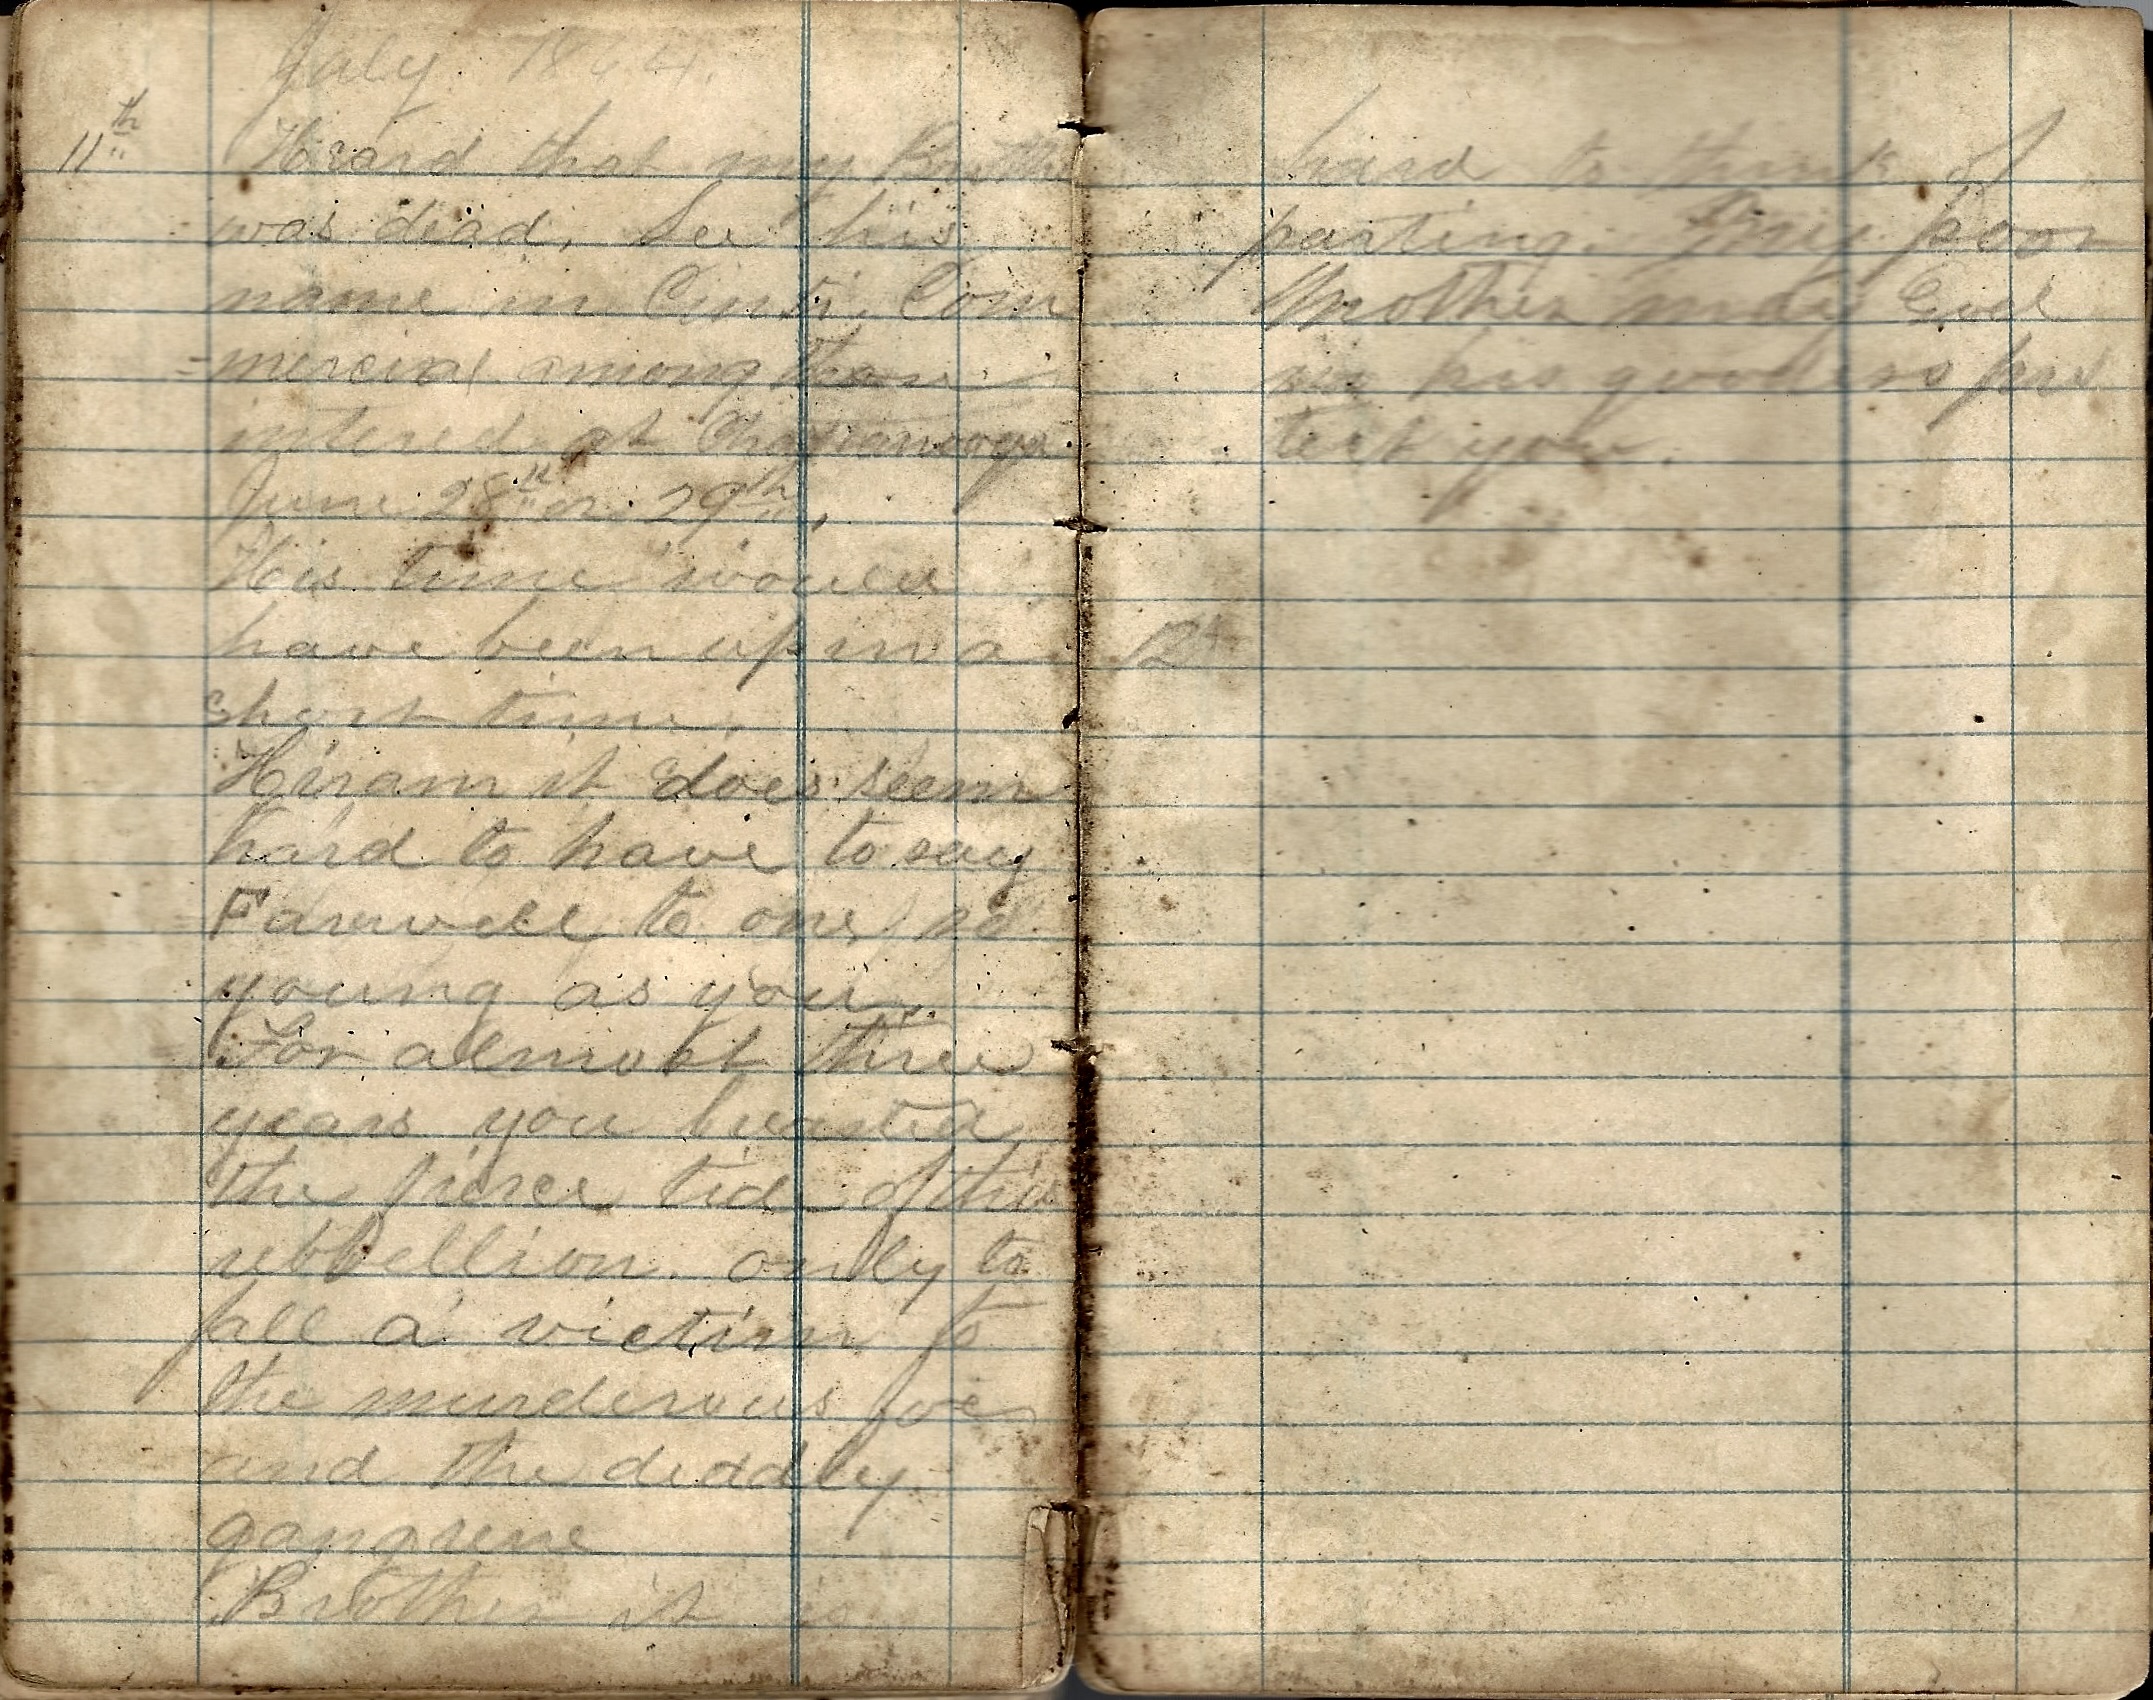 July 1864.
11th Heard that my Brother
was dead, See his
name in Cinti. Com
-mercial among those
intered at Chattanooga
June 28th or 29th,
His time would
have been up in a
short time.
Hiram it does seem
hard to have to say
Farewell to one so
young as you.
For almost three
years you breasted
the fierce tide of this
rebbellion. only to
fall a victim to
the murderous foe
and the deadly
gangrene
Brother it is
hard to think of
parting. My poor
Mother may God
in his goodness pro
tect you.
12th